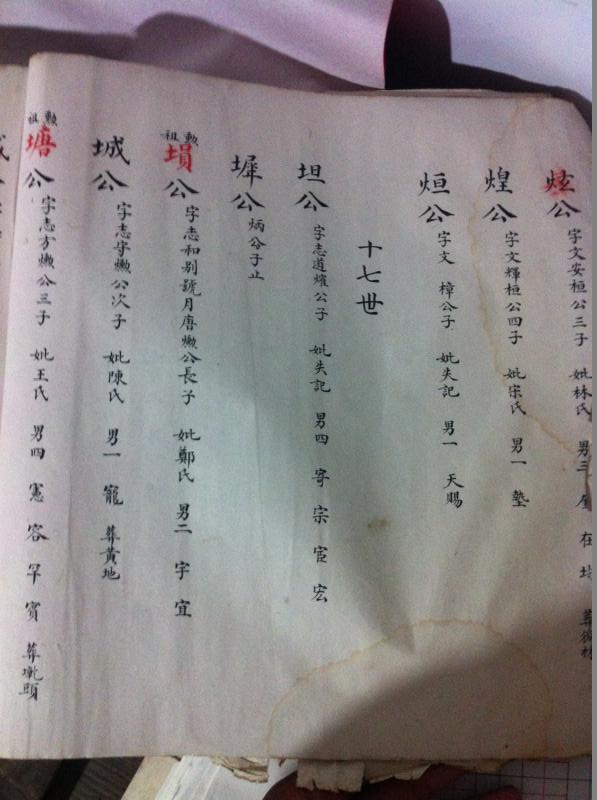 炫公 字文安桓公三子 妣林氏 男三 在 葬
煌公 字文輝桓公四子 妣宋氏 男一 塾
烜公 字文 樟公子 妣失記 男一 天賜
十七世
坦公 字志道燿公子 妣失記 男四 寄 宗 宦 宏
墀公 炳公子止
勲祖
塤公 字志和別號月唐爌公長子 妣鄭氏 男二 字 宜
城公 字志守爌公次子 妣陳氏 男一 寵 葬黃地
勲祖
塘公 字志方爌公三子 妣王氏 男四 憲 容 罕 賓 葬墘頭